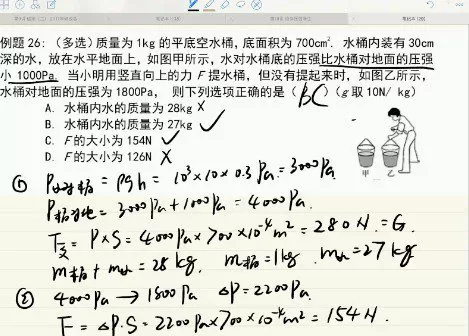 例题 26：(多选) 质量为 1kg 的平底空水桶，底面积为 700cm²．水桶内装有 30cm
深的水，放在水平地面上，如图甲所示，水对水桶底的压强比水桶对地面的压强
小 1000Pa．当小明用竖直向上的力 F 提水桶，但没有提起来时，如图乙所示，
水桶对地面的压强为 1800Pa，则下列选项正确的是（ BC ）(g 取 10N/ kg)
A. 水桶内水的质量为 28kg ×
B. 水桶内水的质量为 27kg ✓
C. F 的大小为 154N ✓
D. F 的大小为 126N ×
甲 乙
① P水对桶 = ρgh = 10³×10×0.3 Pa = 3000Pa
P桶对地 = 3000Pa + 1000Pa = 4000Pa.
F支 = P×S = 4000Pa×700×10⁻⁴m² = 280N = G.
m桶 + m水 = 28kg. m桶 = 1kg. m水 = 27kg
② 4000Pa → 1800Pa ΔP = 2200Pa.
F = ΔP·S = 2200Pa×700×10⁻⁴m² = 154N.